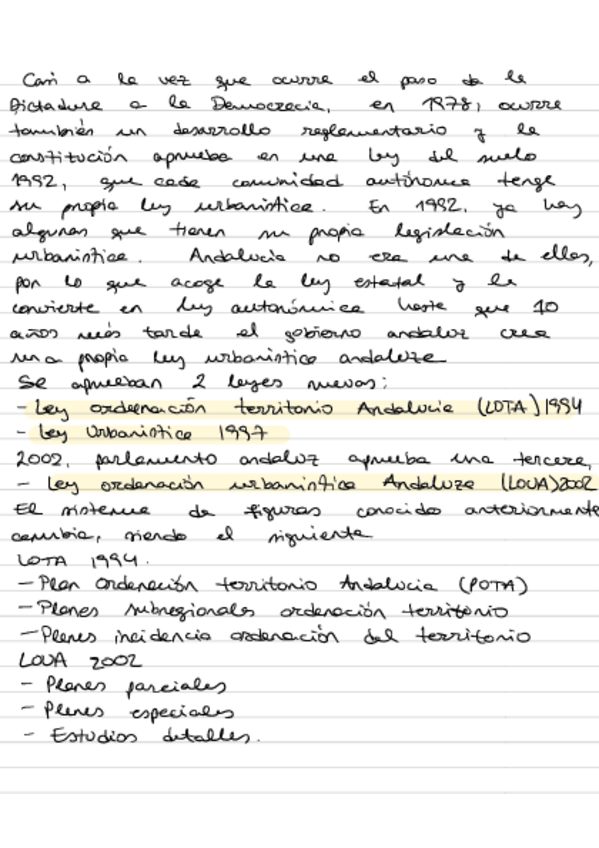 Casi a la vez que ocurre el paso de la
Dictadura a la Democracia, en 1978, ocurre
también un desarrollo reglamentario y la
constitución aprueba en una ley del suelo
1992, que cada comunidad autónoma tenga
su propia ley urbanística. En 1992, ya hay
algunas que tienen su propia legislación
urbanística. Andalucía no era una de ellas,
por lo que acoge la ley estatal y la
convierte en ley autonómica hasta que 10
años más tarde el gobierno andaluz crea
una propia ley urbanística andaluza
Se aprueban 2 leyes nuevas:
- Ley ordenación territorio Andalucía (LOTA) 1994
- Ley Urbanística 1997
2002, parlamento andaluz aprueba una tercera,
- Ley ordenación urbanística Andaluza (LOUA) 2002
El sistema de figuras conocido anteriormente
cambia, siendo el siguiente
LOTA 1994.
- Plan Ordenación territorio Andalucía (POTA)
- Planes subregionales ordenación territorio
- Planes incidencia ordenación del territorio
LOUA 2002
- Planes parciales
- Planes especiales
- Estudios detalles.